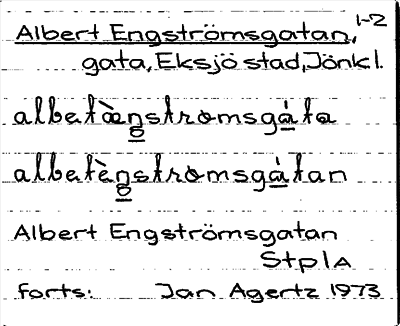 Albert Engströmsgatan, 1-2
gata, Eksjö stad, Jönk l.
albetæ̀ngstromsgáta
albetèngstromsgátan
Albert Engströmsgatan
Stpl A
forts: Jan Agertz 1973